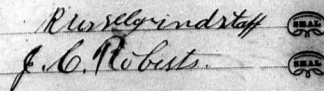 Russel grindstaff SEAL
J. C. Roberts. SEAL